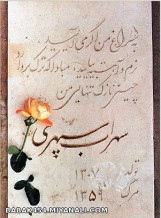 به سراغ من اگر می آیید
نرم و آهسته بیایید، مبادا که ترک بردارد
چینی نازک تنهایی من
سهراب سپهری
تولد ۱۳۰۷
مرگ ۱۳۵۹
BABAK454.MIYANALI.COM